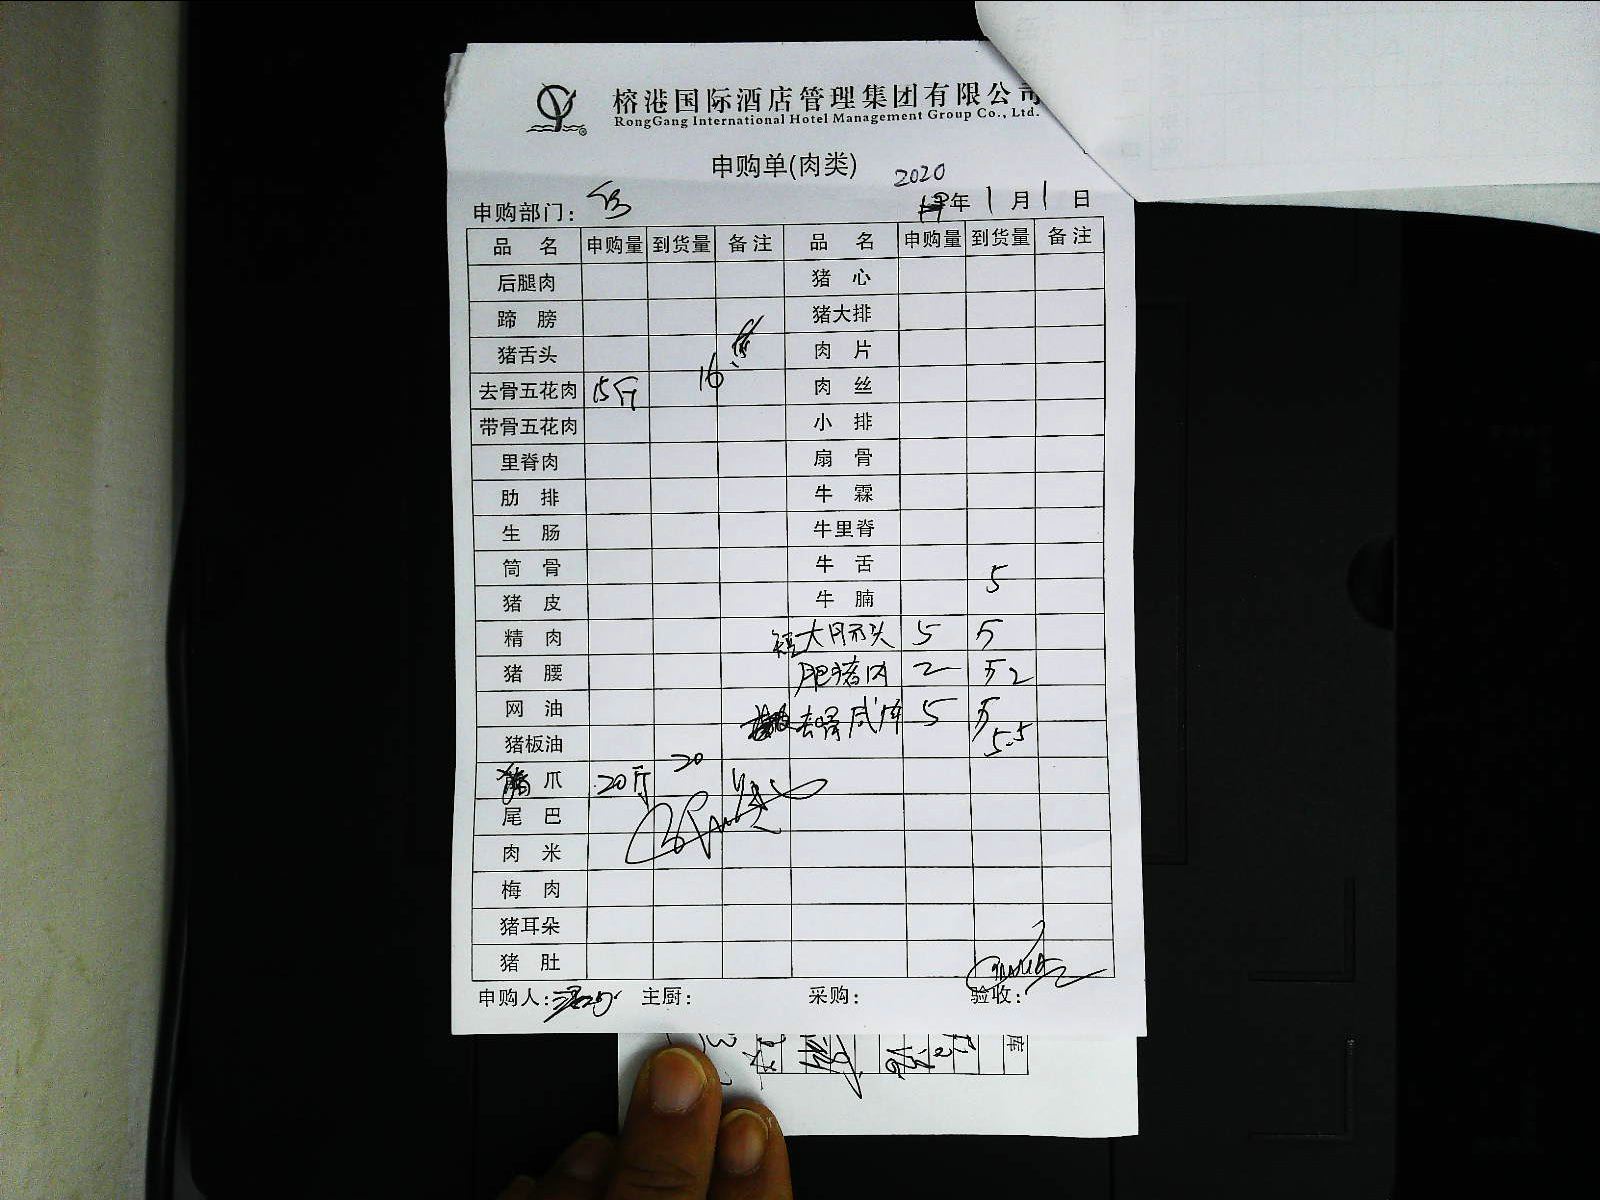 榕港国际酒店管理集团有限公司
RongGang International Hotel Management Group Co., Ltd.
申购单(肉类)
2020
申购部门: 年 1 月 1 日
品 名 申购量 到货量 备注 品 名 申购量 到货量 备注
后腿肉 猪 心
蹄 膀 猪大排
猪舌头 肉 片
去骨五花肉 15斤 16 肉 丝
带骨五花肉 小 排
里脊肉 扇 骨
肋 排 牛 霖
生 肠 牛里脊
筒 骨 牛 舌 5
猪 皮 牛 腩
精 肉 大 头 5 斤
猪 腰 肥猪肉 2 斤 2
网 油 去骨咸 5 斤
猪板油 5.5
爪 20斤 20
尾 巴
肉 米
梅 肉
猪耳朵
猪 肚
申购人: 主厨: 采购: 验收:
库